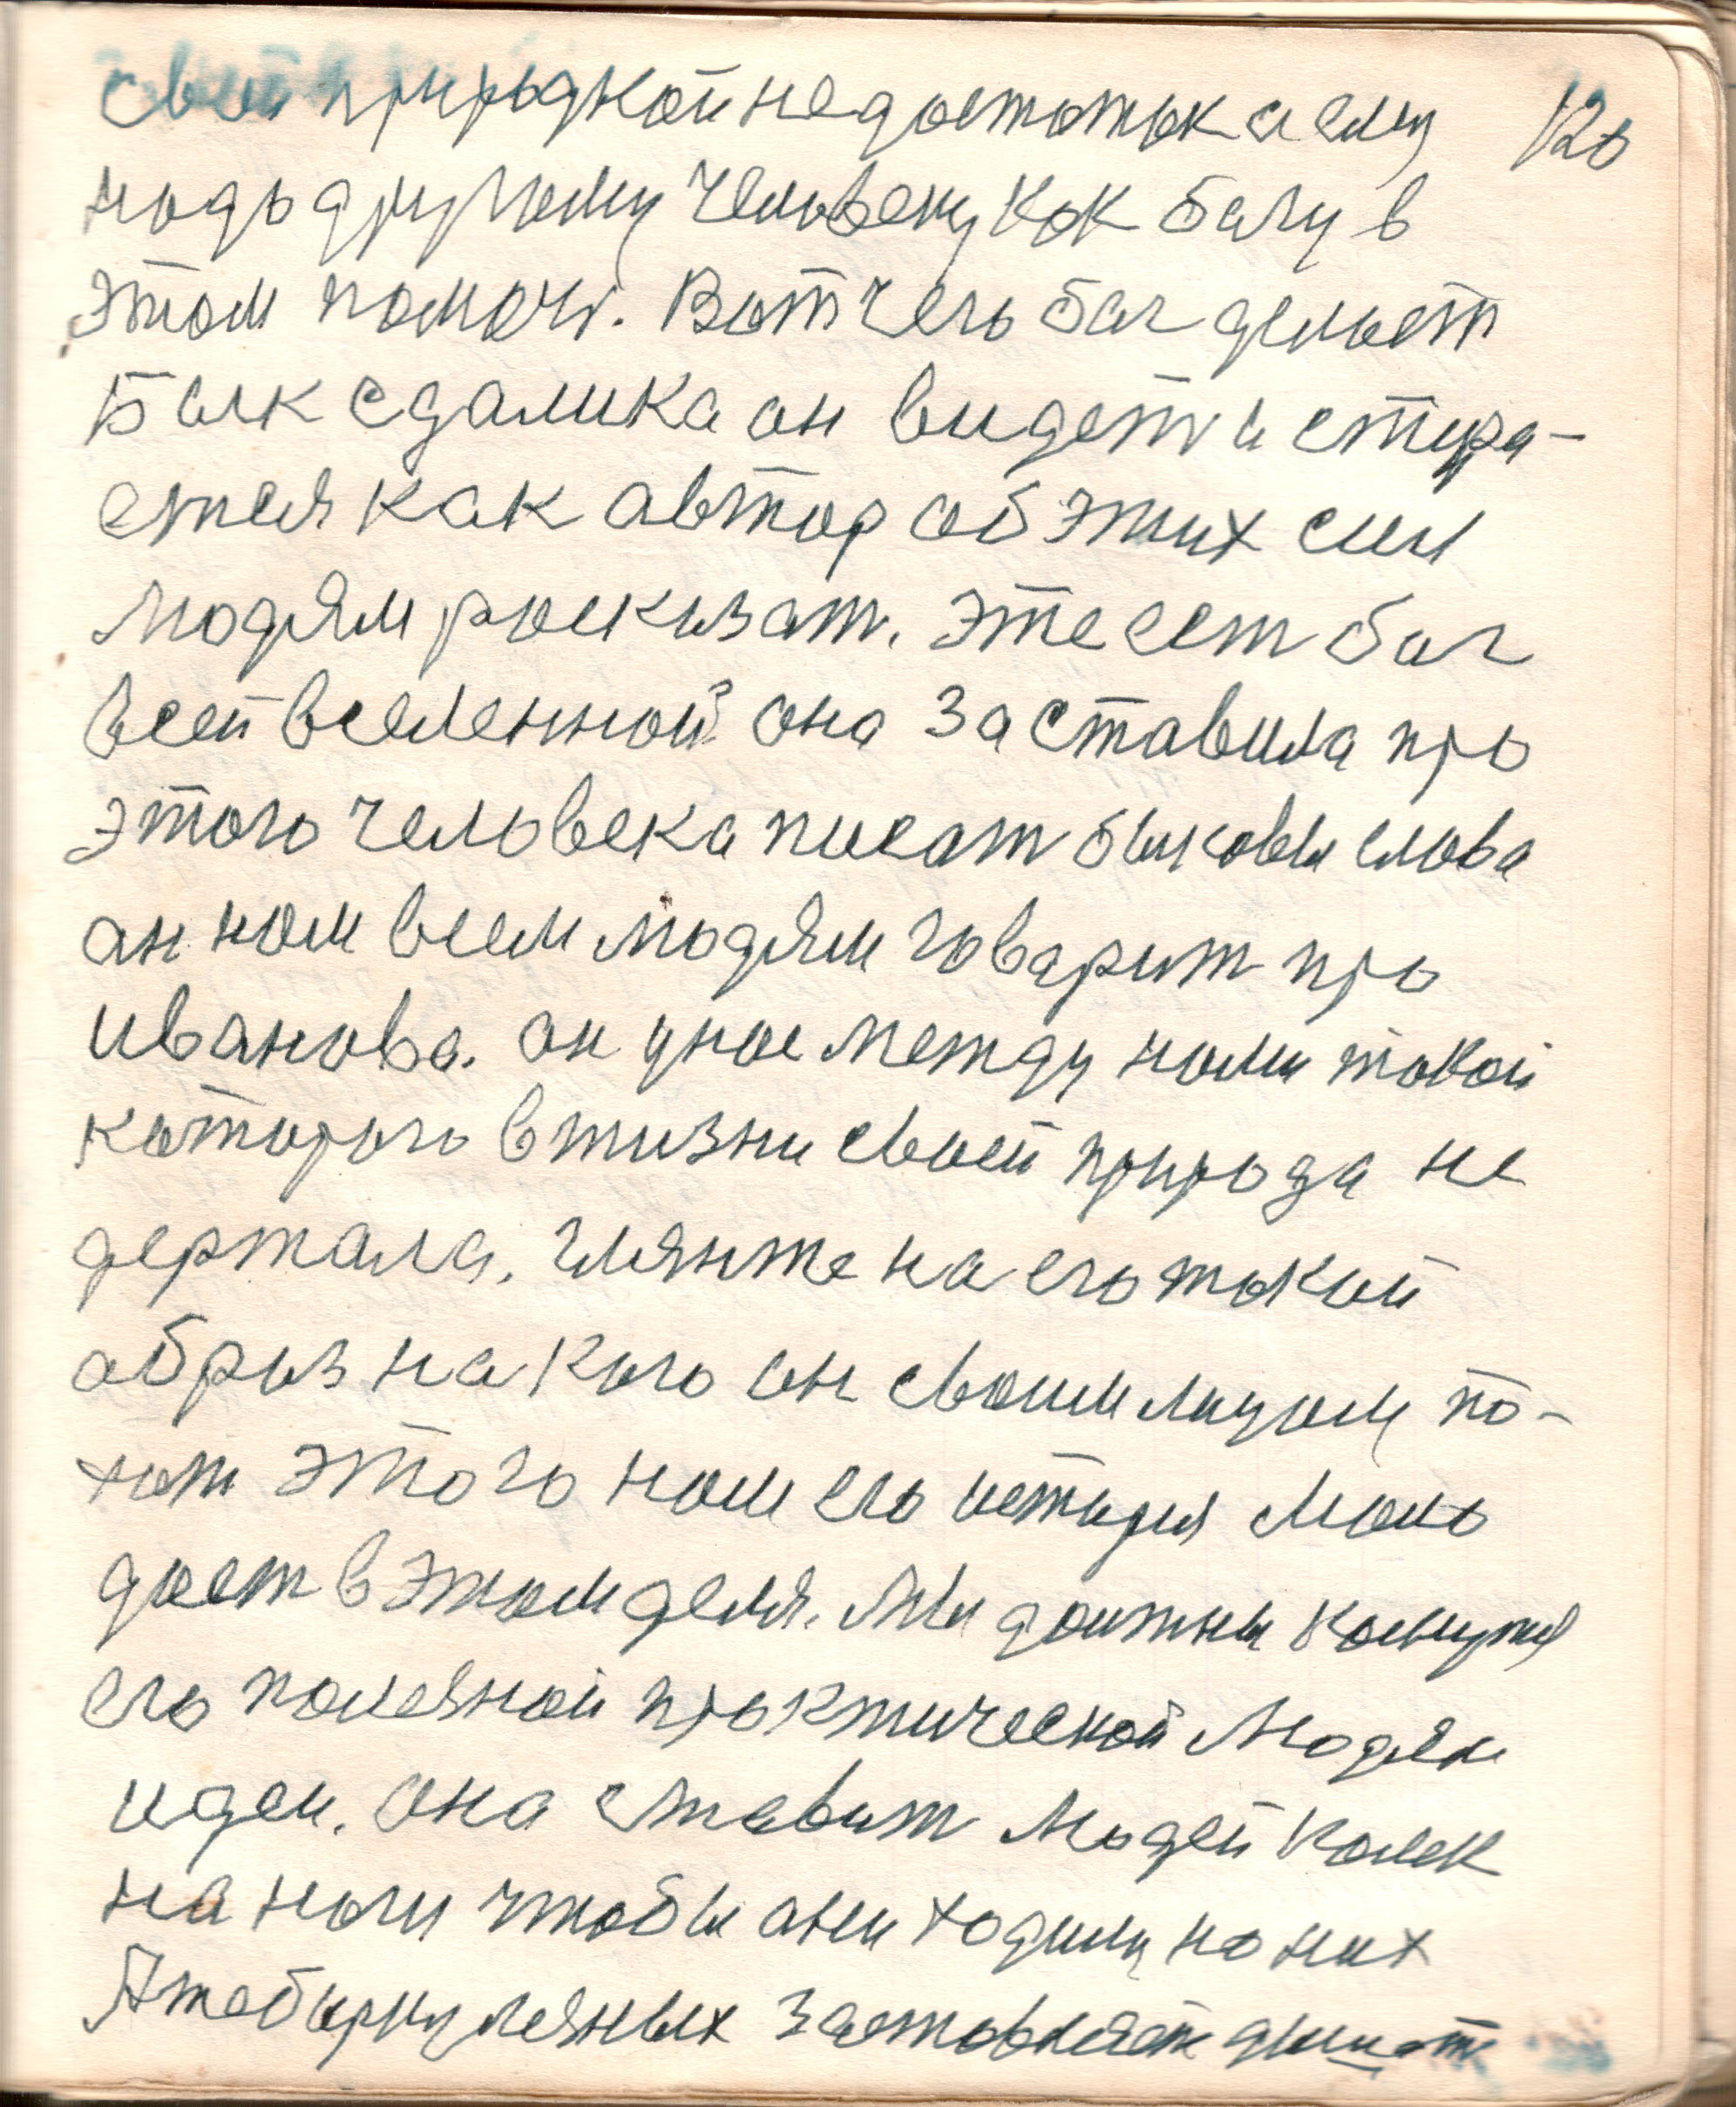 свой природной недостаток а ему 120
надо другому человеку как богу в
этом помоч. Вот чего бог делает
Бык сдалика он видет и стара-
ется как автор об этих сил
людям росказат. Это ест бог
всей вселенной она заставила про
этого человека писат быковы слова
он нам всем людям говарит про
иванова. он у нас между нами такой
которого в жизни своей природа не
держала. гляньте на его такой
образ на кого он своим лицом по-
хож этого нам его история мало
дает в этом деля. Мы должны
его полезной практической людям
идеи. Она ставит людей калек
на ноги чтобы они ходили на них
А заставляет дышат